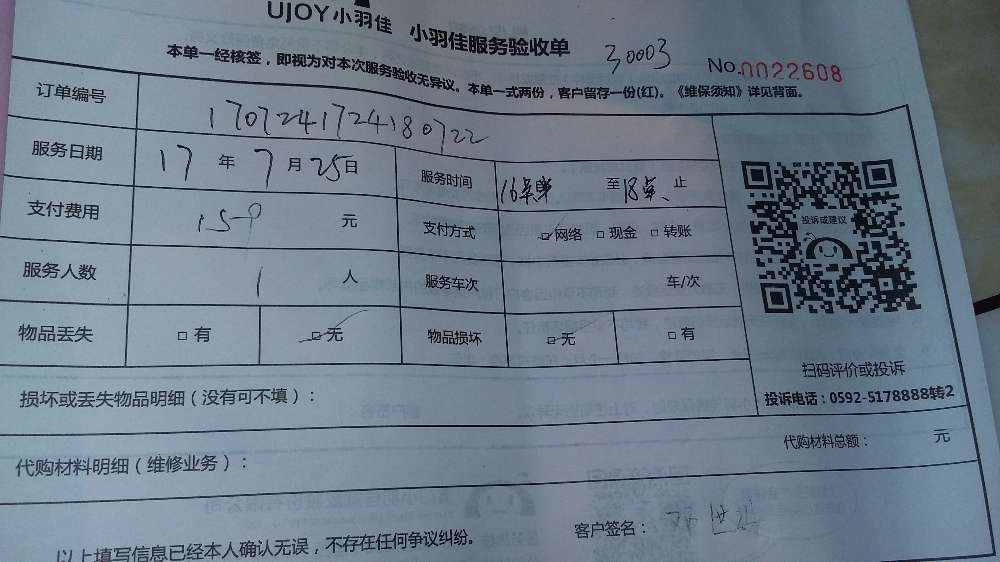 UJOY小羽佳 小羽佳服务验收单 30003 No.0022608
本单一经核签，即视为对本次服务验收无异议。本单一式两份，客户留存一份(红)。《维保须知》详见背面。
订单编号 1707241724180722
服务日期 17 年 7 月 25 日 服务时间 16 至 18 止
支付费用 159 元 支付方式 □网络 □现金 □转账
服务人数 1 人 服务车次 车/次
物品丢失 □有 □无 物品损坏 □无 □有
投诉或建议
扫码评价或投诉
投诉电话：0592-5178888转2
损坏或丢失物品明细（没有可不填）：
代购材料总额： 元
代购材料明细（维修业务）：
客户签名：
以上填写信息已经本人确认无误，不存在任何争议纠纷。